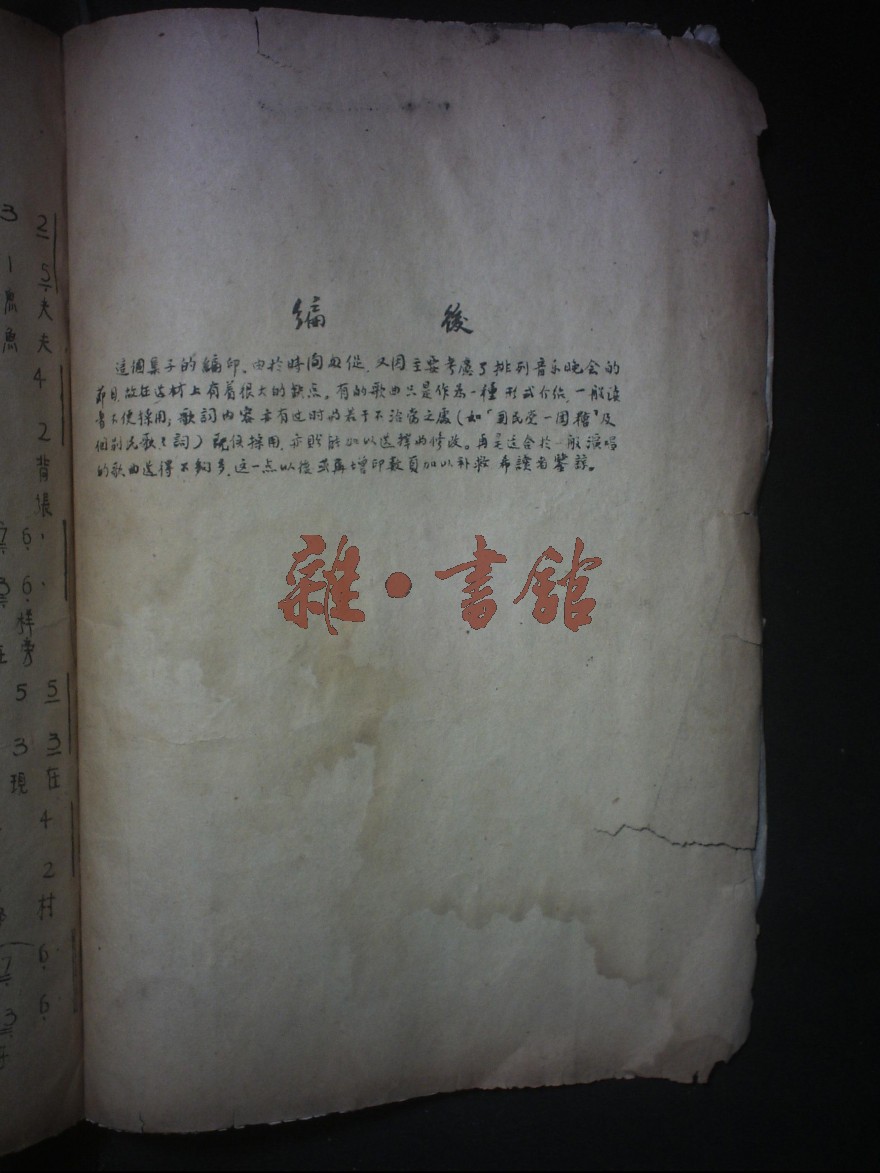 編 後
這個集子的編印、由於時间匆促、又因主要考慮了排列音乐晚会的
節目、故在选材上有着很大的缺点。有的歌曲只是作為一種形式介绍、一般读
者不便採用; 歌詞内容亦有过时的若干不洽當之處(如「国民党一团糟」及
個别民歌之詞) 採用、亦能加以选擇的修改。再是适合於一般演唱
的歌曲选得不夠多、这一点以後或再增印數頁加以补救 希讀者鑒諒。
雜·書館
3 2
1 5
魚 夫
魚 夫
4
2
背
張
7 6
3 6
样
旁
5 5
3 3
現 在
4
2
村
7 6
3 6